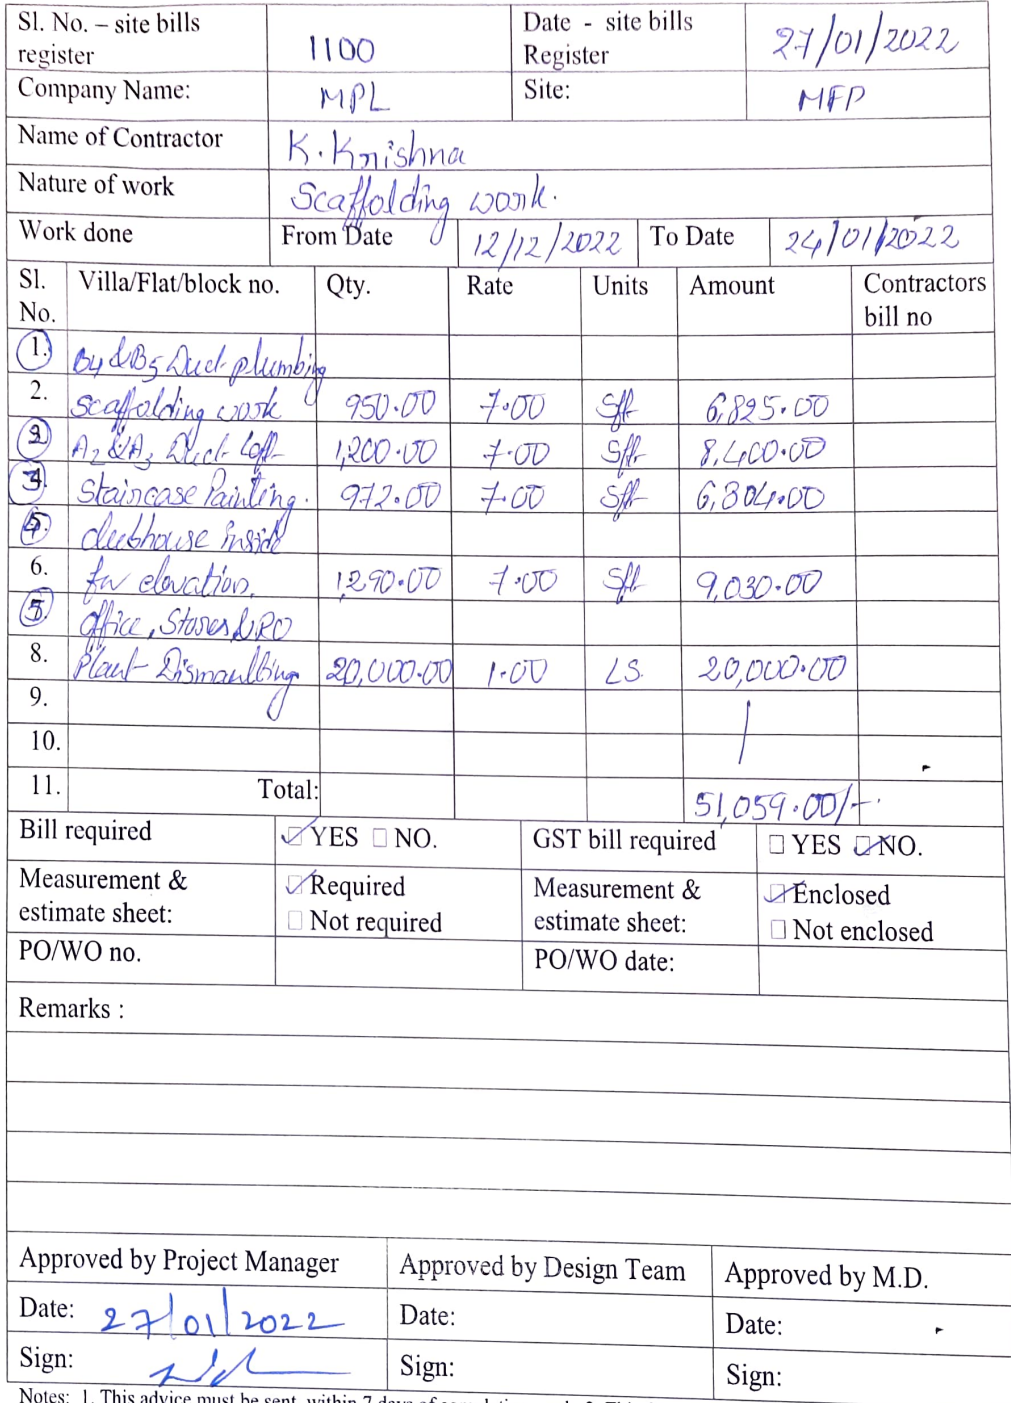 Sl. No. – site bills register 1100 Date - site bills Register 27/01/2022
Company Name: MPL Site: MFP
Name of Contractor K. Krishna
Nature of work Scaffolding work.
Work done From Date 12/12/2022 To Date 24/01/2022
Sl. No. Villa/Flat/block no. Qty. Rate Units Amount Contractors bill no
1. B4 & B5 Duct plumbing
2. Scaffolding work 950.00 7.00 Sft 6,825.00
2 A2 & A3 Duct Loft 1,200.00 7.00 Sft 8,400.00
3. Staircase Painting. 972.00 7.00 Sft 6,804.00
4. clubhouse inside
6. for elevation. 1,290.00 7.00 Sft 9,030.00
5. office, Stores & RO
8. Plant Dismaulting 20,000.00 1.00 LS. 20,000.00
9.
10.
11. Total: 51,059.00/-
Bill required YES NO. GST bill required YES NO.
Measurement & estimate sheet: Required Not required Measurement & estimate sheet: Enclosed Not enclosed
PO/WO no. PO/WO date:
Remarks :
Approved by Project Manager Approved by Design Team Approved by M.D.
Date: 27/01/2022 Date: Date:
Sign: Sign: Sign:
Notes: 1. This advice must be sent within 7 days of